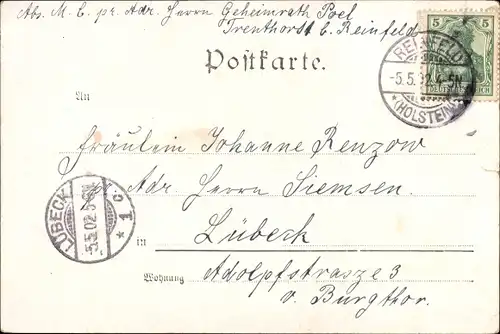 Abs. M. C. pr. Adr. Herrn Geheimrath Poel
Trenthorst b. Reinfeld
5 5
DEUTSCHES REICH
REINFELD
-5.5.02.4-5N
*(HOLSTEIN)
Postkarte.
An
Fräulein Johanne Renzow
pr. Adr. Herrn Siemsen.
LÜBECK
5.5.02
* 1 c
in Lübeck
Wohnung Adolpfstrasze 3
v. Burgthor.